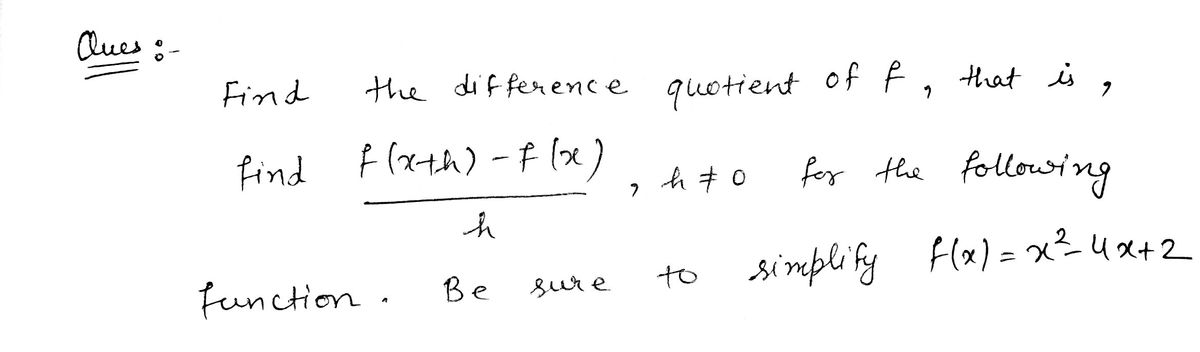 Ques :-
Find the difference quotient of f, that is,
find f(x+h) - f(x) / h , h ≠ 0 for the following
function. Be sure to simplify f(x) = x² - 4x + 2